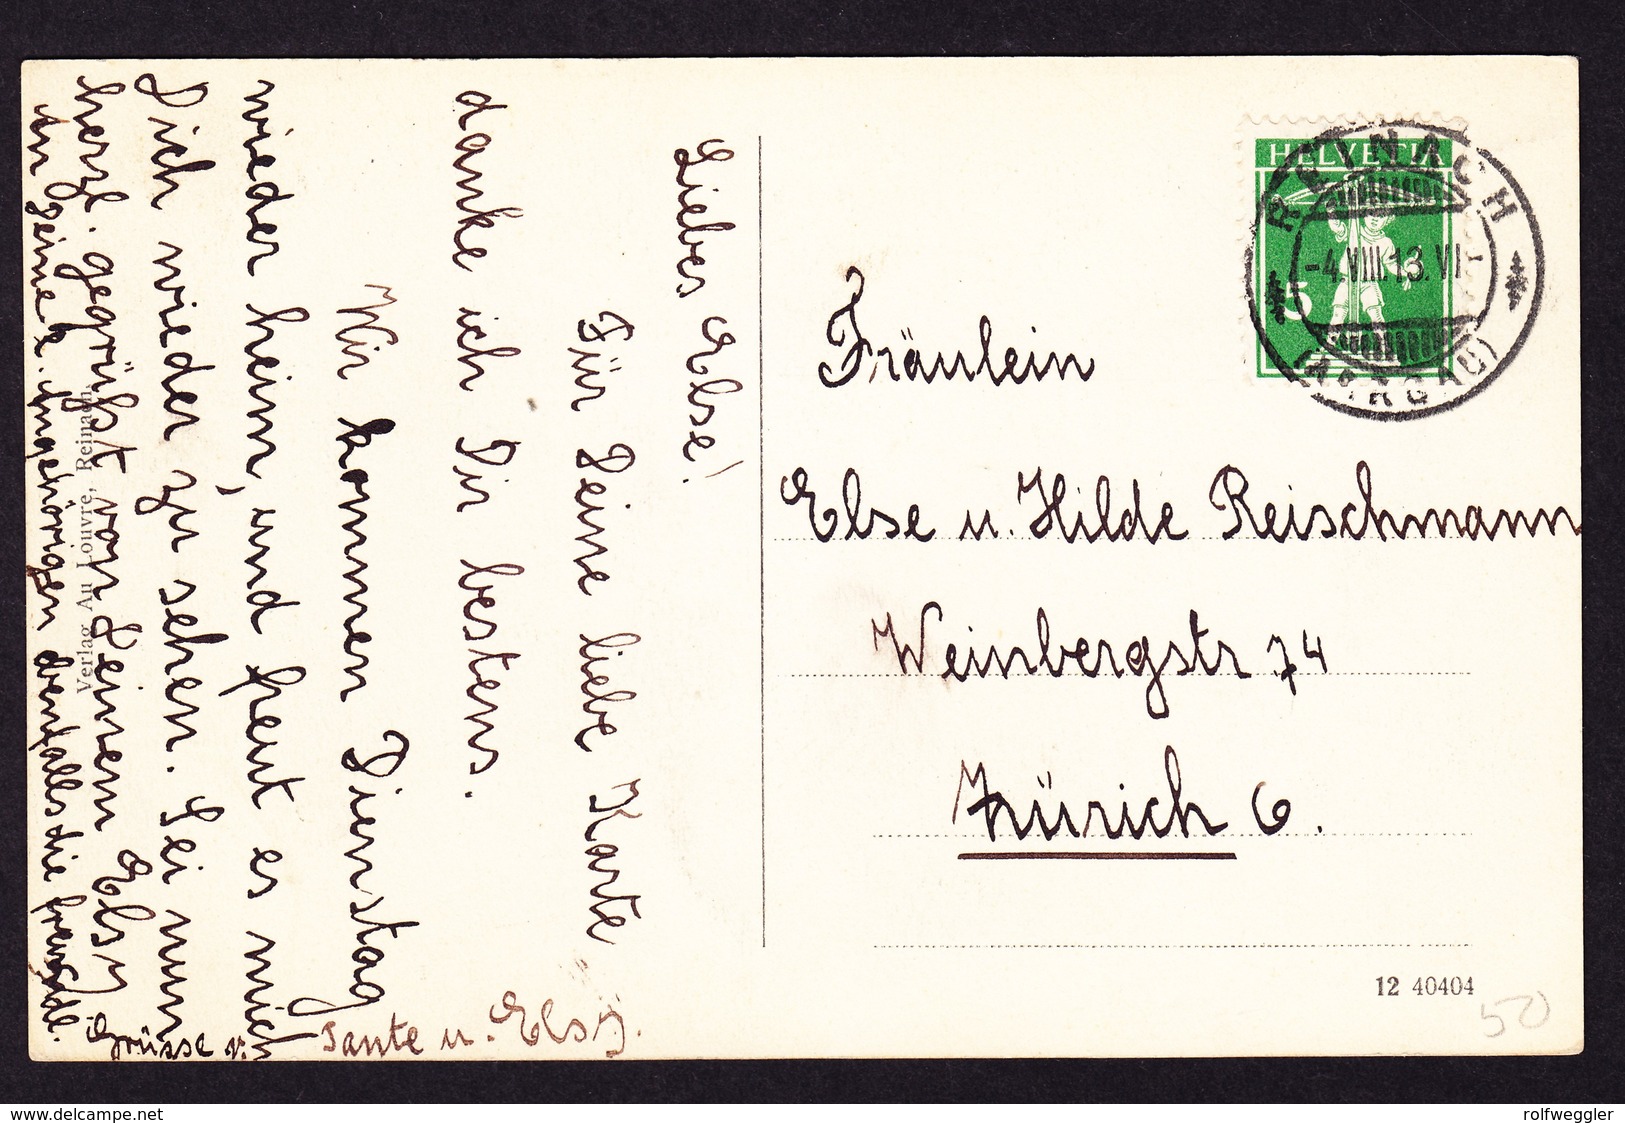 Liebes Else!
Für Deine liebe Karte
danke ich Dir bestens.
Wir kommen Dienstag
wieder heim, und freut es mich
Dich wieder zu sehen. Sei nun
herzl. gegrüßt von Deinem Elsy
die freude.
Grüsse v. Tante u. Elsy.
Verlag Au Louvre, Reinach.
HELVETIA
5
REINACH
-4.VIII.13.VI
(AARGAU)
Fräulein
Else u. Hilde Reischmann
Weinbergstr. 74
Zürich 6.
12 40404
50
delcampe.net
rolfweggler